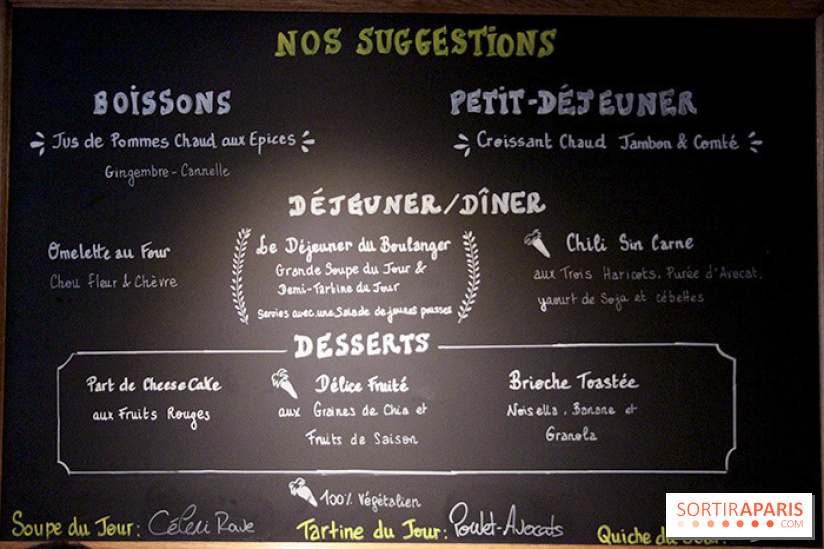 NOS SUGGESTIONS
BOISSONS
Jus de Pommes Chaud aux Epices
Gingembre - Cannelle
PETIT-DÉJEUNER
Croissant Chaud Jambon & Comté
DÉJEUNER/DÎNER
Omelette au Four
Chou Fleur & Chèvre
Le Déjeuner du Boulanger
Grande Soupe du Jour &
Demi-Tartine du Jour
Servies avec une Salade de jeunes pousses
Chili Sin Carne
aux Trois Haricots, Purée d'Avocat,
yaourt de Soja et cébettes
DESSERTS
Part de CheeseCake
aux Fruits Rouges
Délice Fruité
aux Graines de Chia et
Fruits de Saison
Brioche Toastée
Noisella, Banane et
Granola
100% Végétalien
Soupe du Jour: Céleri Rave
Tartine du Jour: Poulet-Avocats
Quiche du Jour:
SORTIRAPARIS
.COM